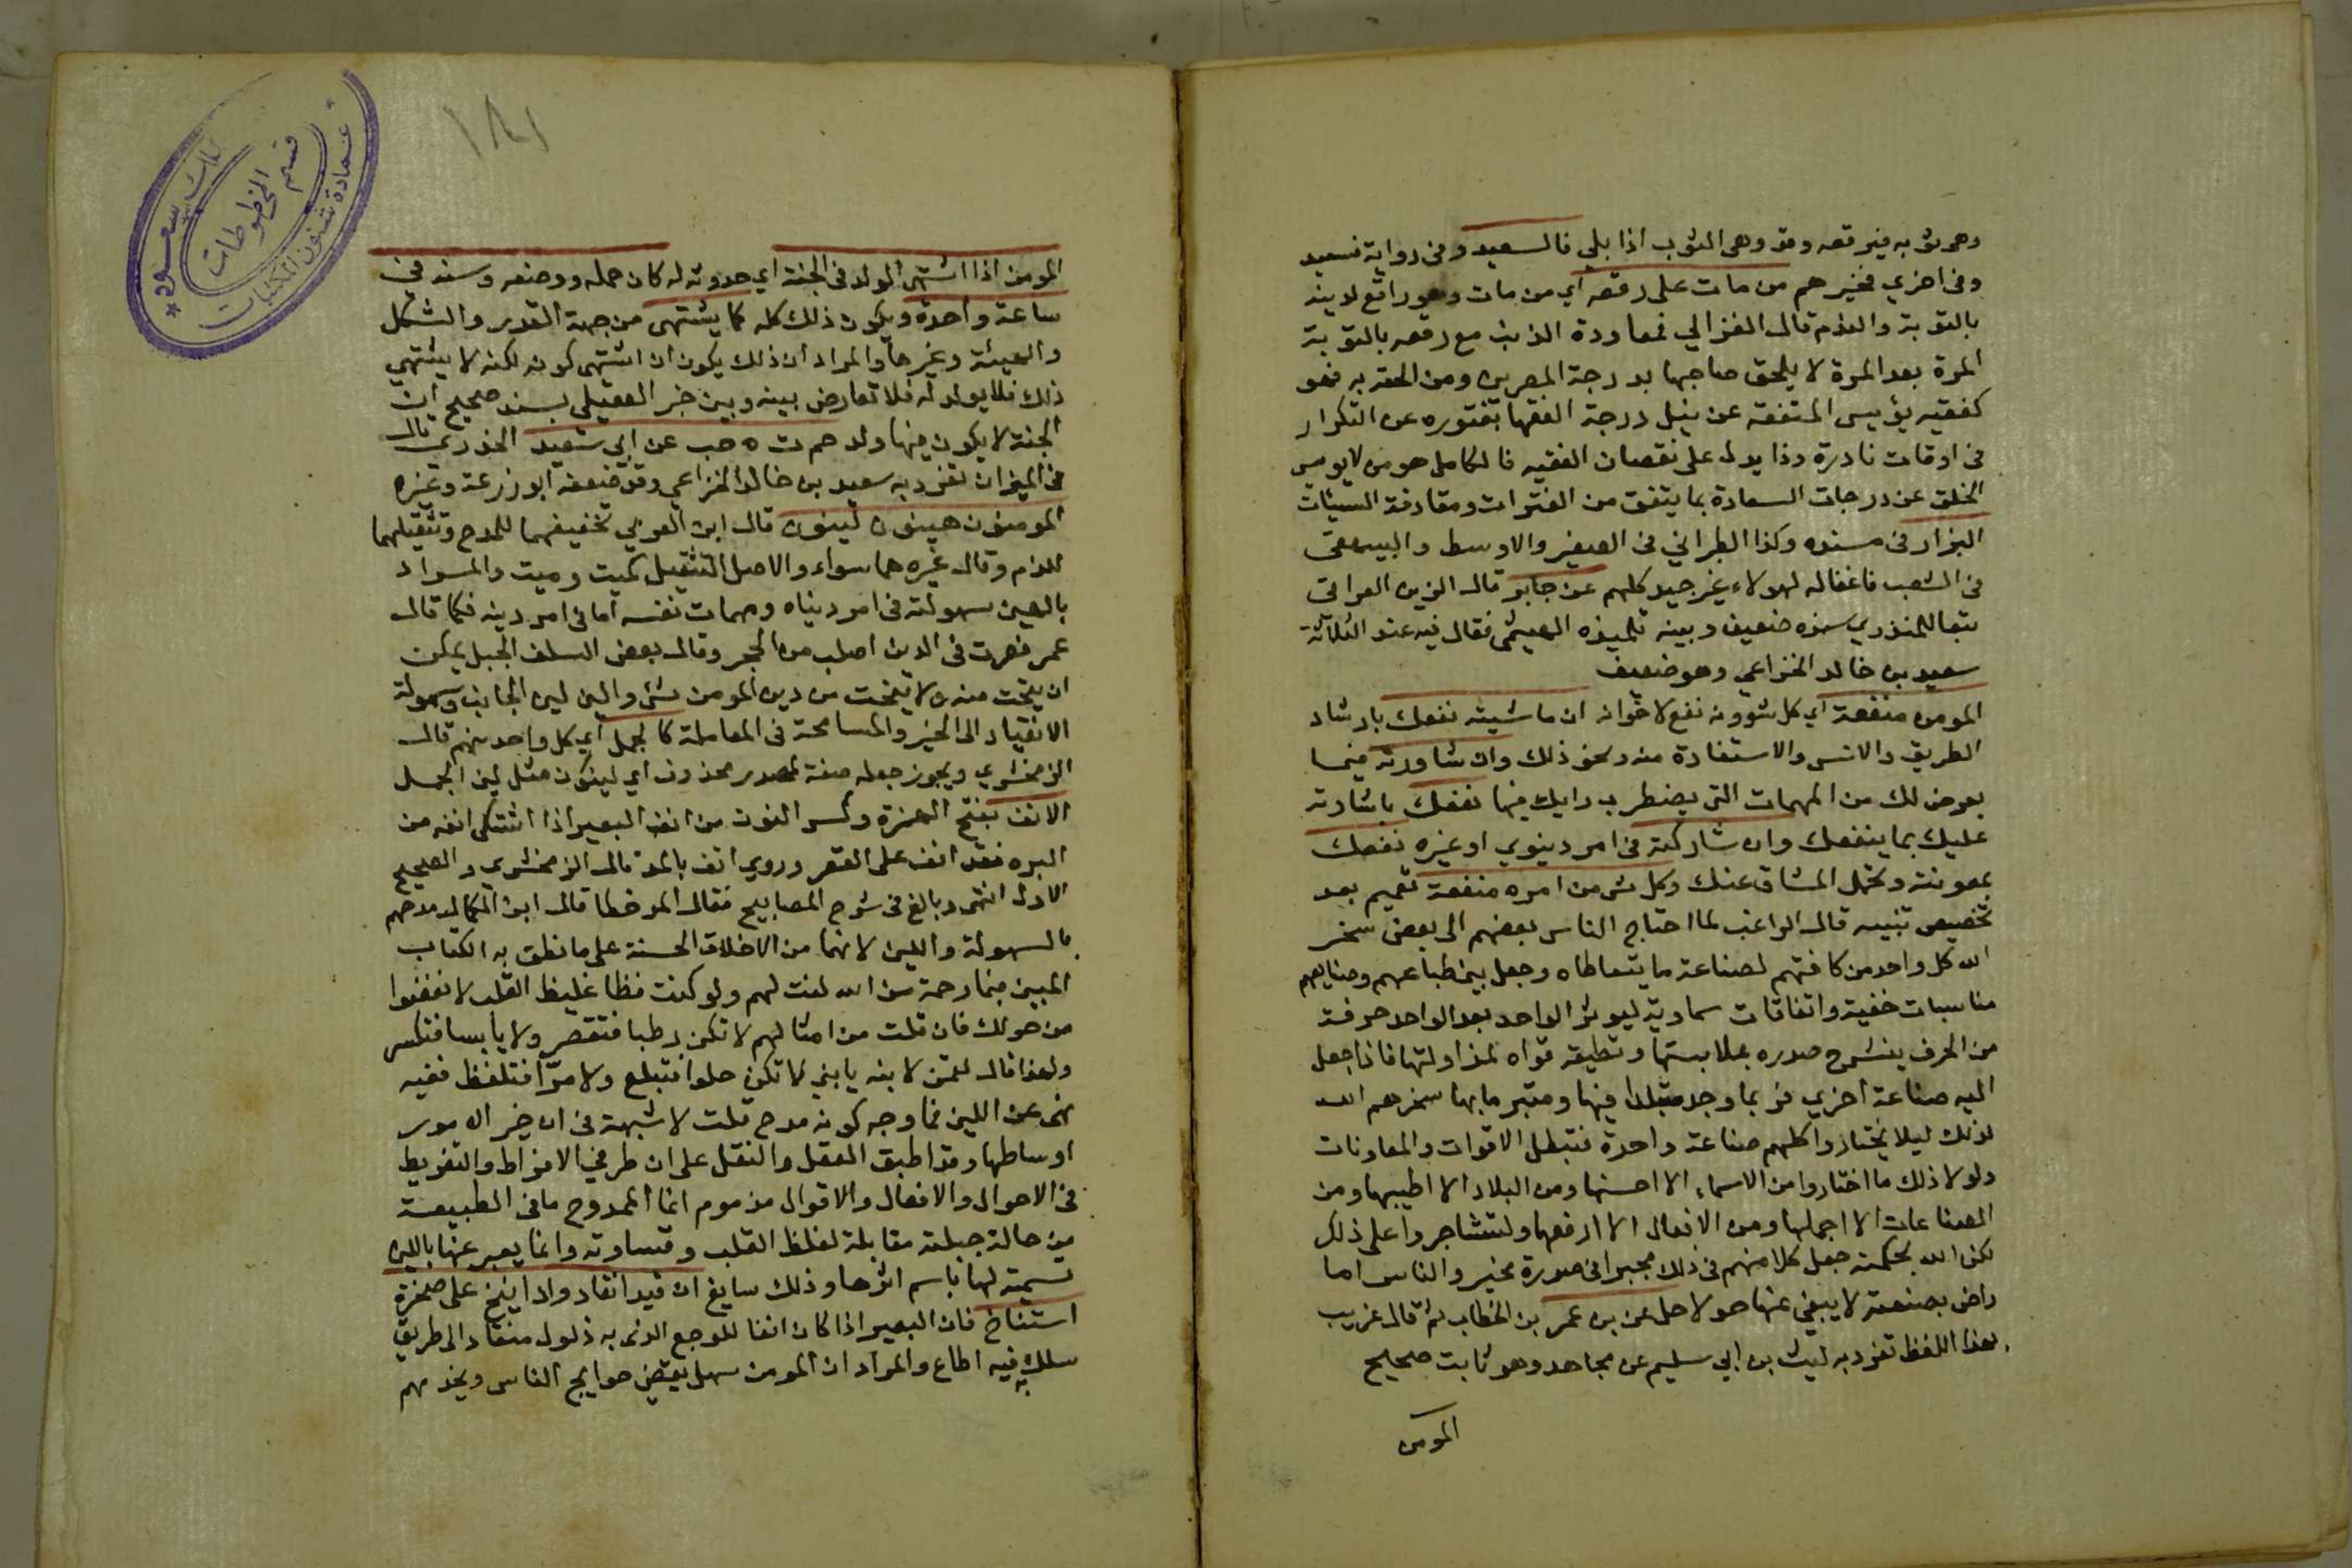 وهي ثوبه فيرقعه وقد وهي الثوب اذا بلي فالسعيد وفي رواية فسعيد
وفي اخري فخيرهم من مات على رقعه اي من مات وهو راقع لدينه
بالتوبة والندم قال الغزالي فمعاودة الذنب مع رقعه بالتوبة
المرة بعد المرة لا يلحق صاحبها بدرجة المصرين ومن الحقه به فهو
كفقيه يؤيس المتفقه عن نيل درجة الفقها بفتوره عن التكرار
في اوقات نادرة وذا يدل على نقصان الفقيه فالكامل هو من لا يويس
الخلق عن درجات السعادة بما يتفق من الفترات ومقارفة السيئات
البزار في مسنده وكذا الطبراني في الصغير والاوسط والبيهقي
في الشعب فاغفاله لهولاء غير جيد كلهم عن جابر قال الزين العراقي
تبعا للمنذري سنده ضعيف وبينه تلميذه الهيثمي فقال فيه عند الثلاثة
سعيد بن خالد الخزاعي وهو ضعيف
المومن منفعة اي كل شوونه نفع لاخوانه ان ماشيته نفعك بارشاد
الطريق والانس والاستفادة منه ونحو ذلك وان شاورته فيما
يعرض لك من المهمات التي يضطرب رايك فيها نفعك باشارته
عليك بما ينفعك وان شاركته في امر دينوي او غيره نفعك
بمعونته وتحمل المشاق عنك وكل شي من امره منفعة تعميم بعد
تخصيص تنبيه قال الراغب لما احتاج الناس بعضهم الى بعض سخر
الله كل واحد من كافتهم لصناعة ما يتعاطاه وجعل بين طباعهم وصنايعهم
مناسبات خفية واتفاقات سماوية ليوثر الواحد بعد الواحد حرفة
من الحرف ينشرح صدره بملابستها وتطيعه قواه لمزاولتها فاذا جعل
اليه صناعة اخري فربما وجد متبلدا فيها ومتبرما بها سخرهم الله
لذلك ليلا يختاروا كلهم صناعة واحدة فتبطل الاقوات والمعاونات
ولولا ذلك ما اختاروا من الاسماء الا احسنها ومن البلاد الا اطيبها ومن
الصناعات الا اجملها ومن الافعال الا ارفعها ولتشاجروا على ذلك
لكن الله بحكمته جعل كلا منهم في ذلك مجبرا في صورة مخير والناس اما
راض بصنعته لا يبغي عنها حولا حل عن بن عمر بن الخطاب ثم قال غريب
بهذا اللفظ تفرد به ليث بن ابي سليم عن مجاهد وهو ثابت صحيح
المومن
١٨١
المومن اذا اشتهى الولد في الجنة اي حدوثه له كان حمله ووضعه وسنه في
ساعة واحدة ويكون ذلك كله كما يشتهي من جهة القدر والشكل
والهيئة وغيرها والمراد ان ذلك يكون ان اشتهى كونه لكنه لا يشتهي
ذلك فلا يولد له فلا تعارض بينه وبين خبر العقيلي بسند صحيح ان
الجنة لا يكون فيها ولد حم ت ه حب عن ابي سعيد الخدري قال
في الميزان تفرد به سعيد بن خالد الخزاعي وقد ضعفه ابو زرعة وغيره
المومنون هينون لينون قال ابن العربي تخفيفهما للمدح وتثقيلهما
للذم وقال غيره هما سواء والاصل التثقيل كميت وميت والمراد
بالهين سهولته في امر دنياه ومهمات نفسه اما في امر دينه فكما قال
عمر فصرت في الدين اصلب من الحجر وقال بعض السلف الجبل يمكن
ان ينحت منه ولا ينحت من دين المومن شي والين لين الجانب وسهولة
الانقياد الى الخير والمسامحة في المعاملة كالجمل اي كل واحد منهم قال
الزمخشري ويجوز جعله صفة لمصدر محذوف اي لينون مثل لين الجمل
الانف بفتح الهمزة وكسر النون من انف البعير اذا اشتكى انفه من
البره فقد انف على القصر وروي انف بالمد قال الزمخشري والصحيح
الاول انتهى وبالغ في شرح المصابيح فقال المد خطا قال ابن الكمال مدحهم
بالسهولة واللين لانهما من الاخلاق الحسنة على ما نطق به الكتاب
المبين فبما رحمة من الله لنت لهم ولو كنت فظا غليظ القلب لانفضوا
من حولك فان قلت من امثالهم لا تكن رطبا فتعصر ولا يابسا فتكسر
ولهذا قال لقمن لابنه يا بني لا تكن حلوا فتبلع ولا مرا فتلفظ ففيه
نهى عن اللين فما وجه كونه مدح قلت لا شبهة في ان خير الامور
اوساطها وقد اطبق العقل والنقل على ان طرفي الافراط والتفريط
في الاحوال والافعال والاقوال مذموم انما الممدوح ما في الطبيعة
من حالة جبلته مقابلة لغلظ القلب وقساوته وانما يعبر عنها باللين
تسمية لها باسم اثرها وذلك سايغ ان قيد انقاد واذا انيخ على صخرة
استناخ فان البعير اذا كان انفا للوجع الذي به ذلول منقاد الى طريق
سلك به فيه اطاع والمراد ان المومن سهل يقضي حوايج الناس ويخدمهم
سعود
قسم المخطوطات
عمادة شئون المكتبات